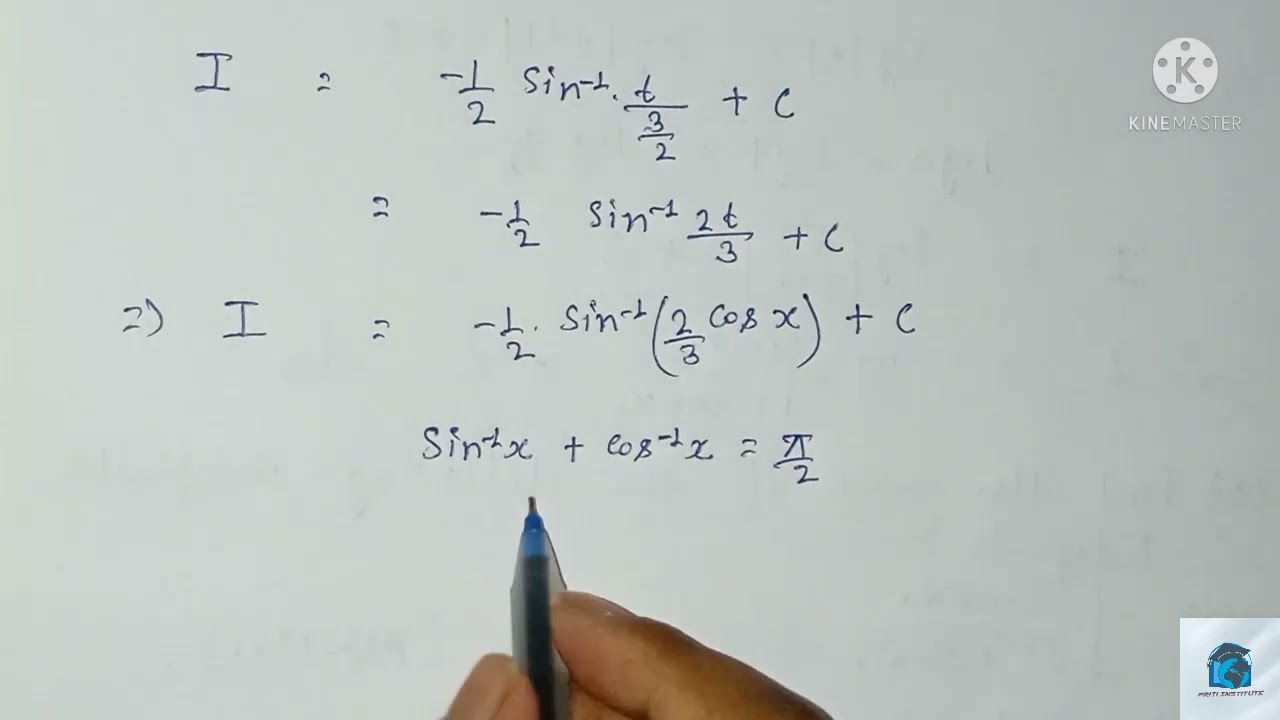 I = -1/2 Sin⁻¹. t/(3/2) + C
= -1/2 Sin⁻¹ 2t/3 + C
=) I = -1/2. Sin⁻¹(2/3 Cos x) + C
Sin⁻¹x + Cos⁻¹x = π/2
KINEMASTER
PRITI INSTITUTE